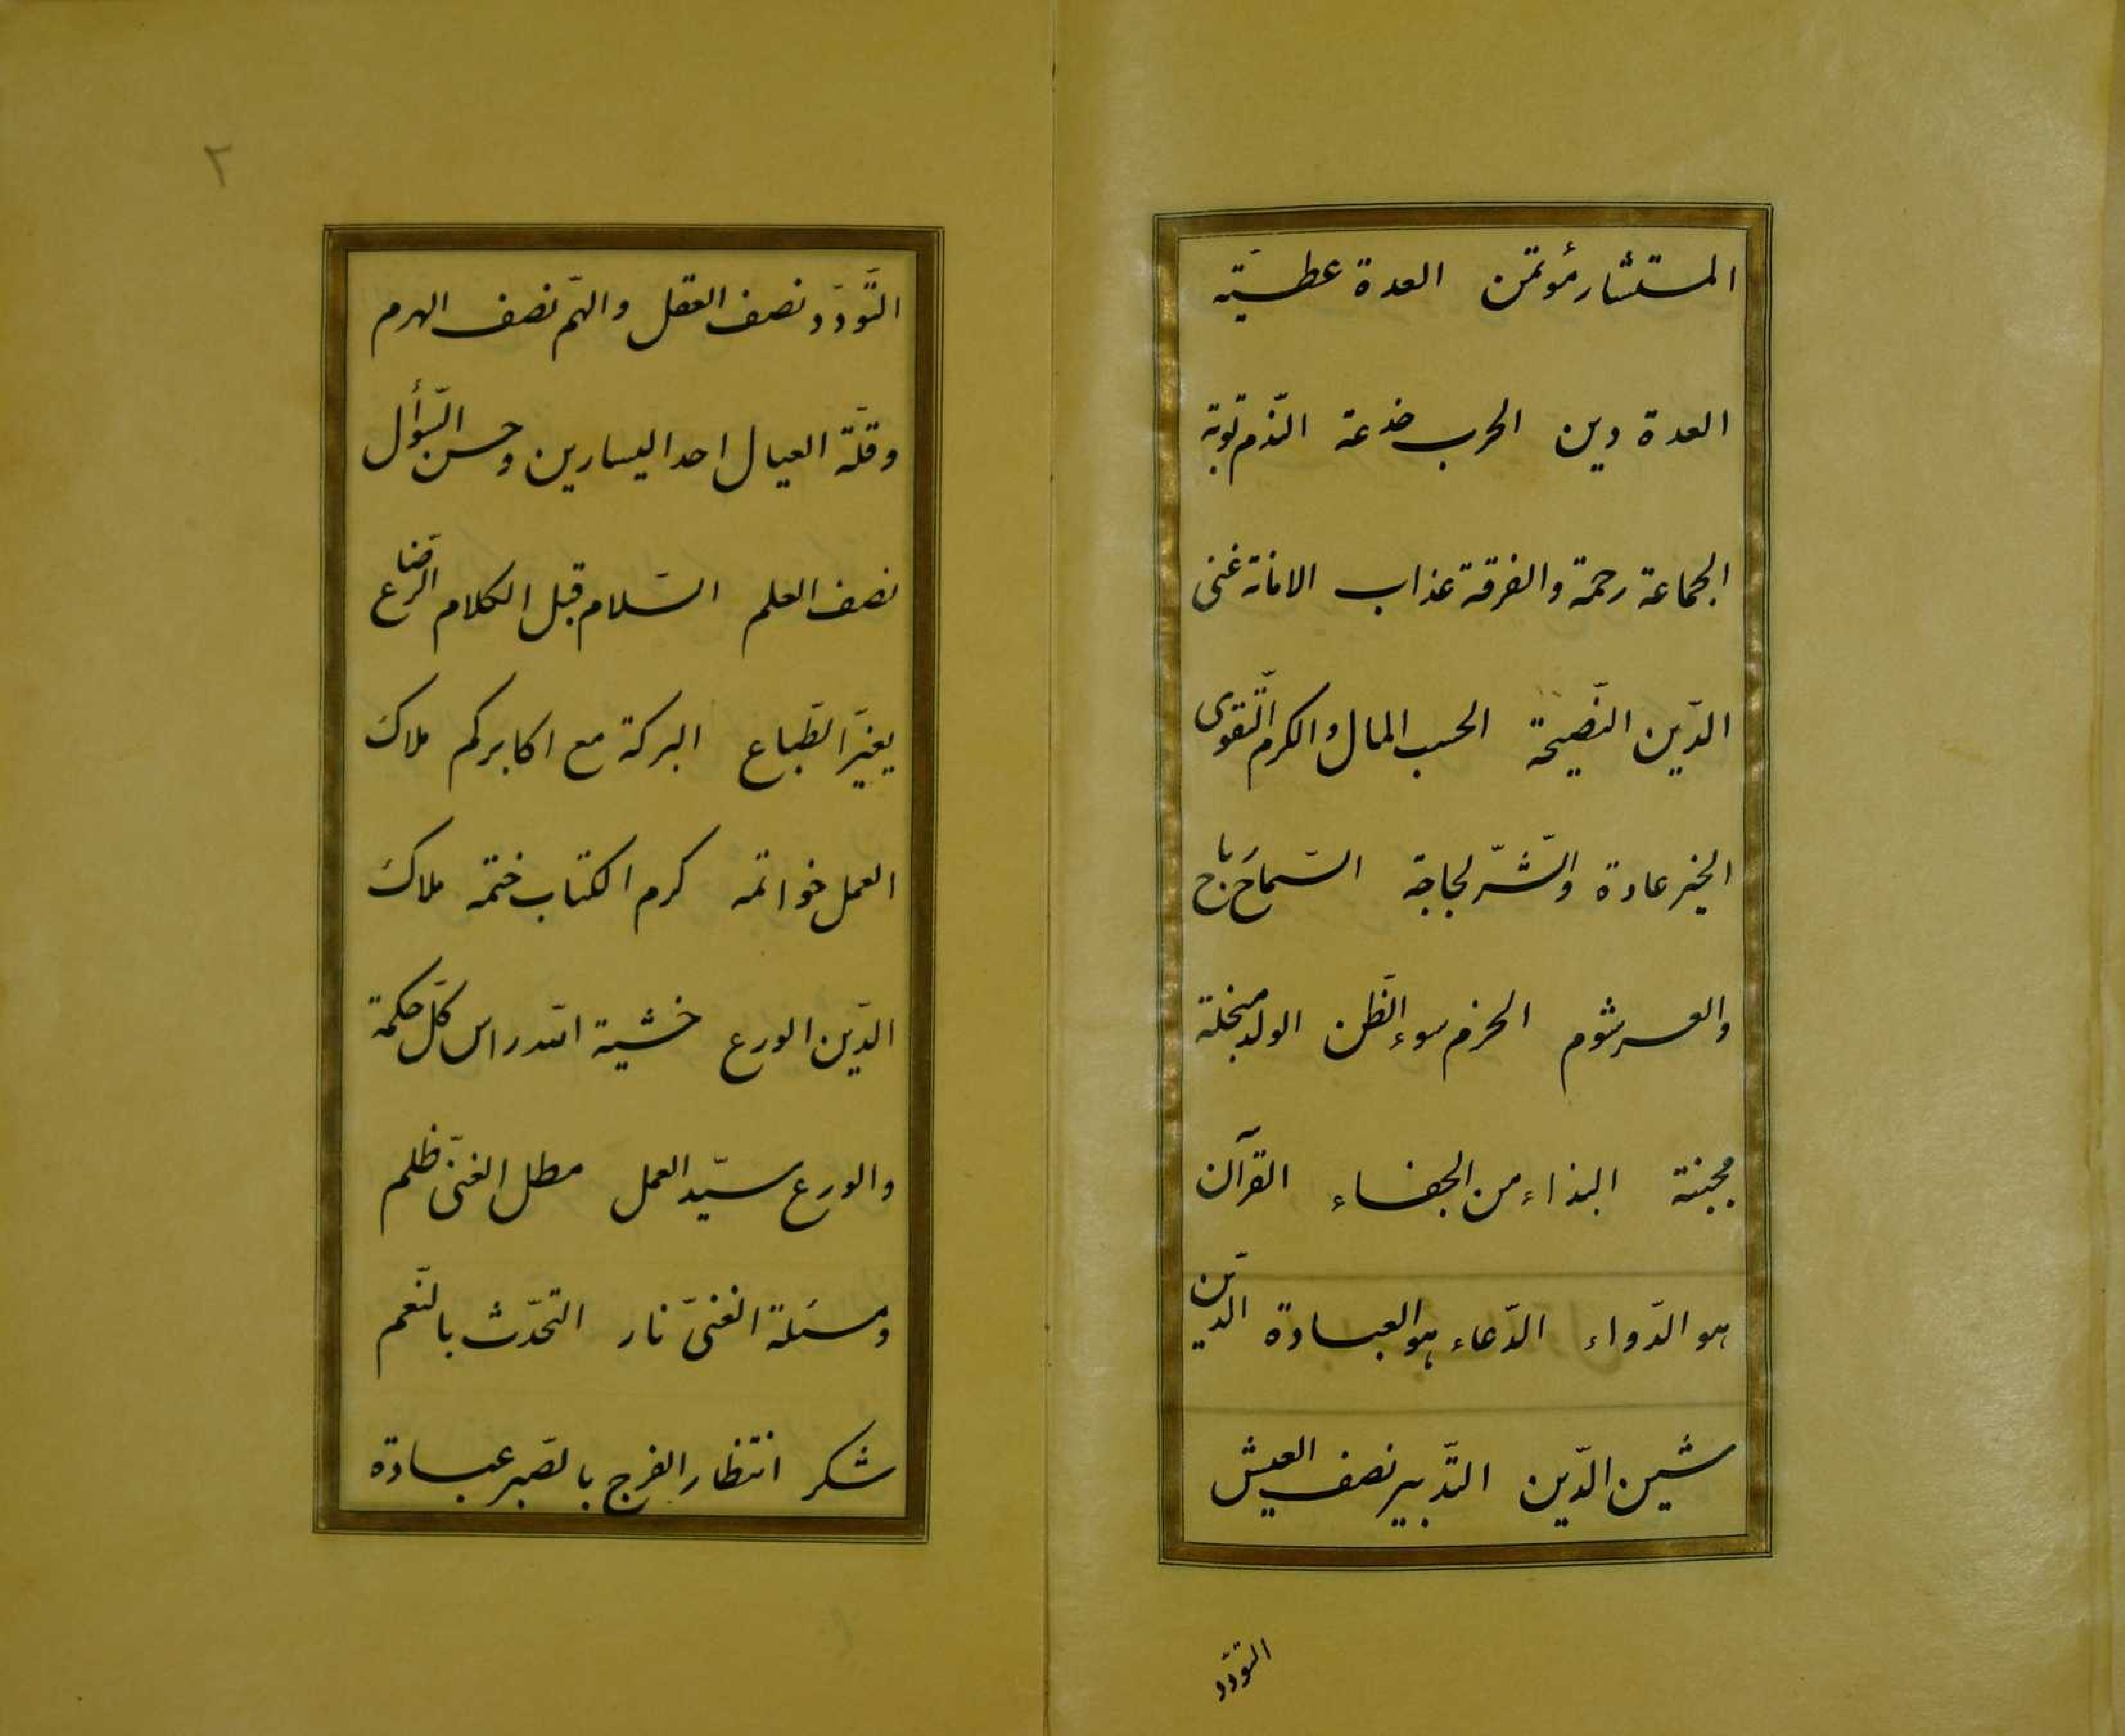 المستشار مؤتمن العدة عطيّة
العدة دين الحرب خدعة النّدم توبة
الجماعة رحمة والفرقة عذاب الامانة غنى
الدّين النّصيحة الحسب المال والكرم التّقوى
الخير عادة والشّرّ لجاجة السّماح رباح
والعسر شوم الحزم سوء الظّن الولد مبخلة
مجبنة البذاء من الجفاء القرآن
هو الدّواء الدّعاء هو العبادة الدّين
شين الدّين التّدبير نصف العيش
التودّد
٢
التّودّد نصف العقل والهمّ نصف الهرم
وقلّة العيال احد اليسارين وحسن السّؤال
نصف العلم السّلام قبل الكلام الرّضاع
يغيّر الطّباع البركة مع اكابركم ملاك
العمل خواتمه كرم الكتاب ختمه ملاك
الدّين الورع خشية اللّه راس كلّ حكمة
والورع سيّد العمل مطل الغنىّ ظلم
ومسئلة الغنىّ نار التحدّث بالنّعم
شكر انتظار الفرج بالصّبر عبادة